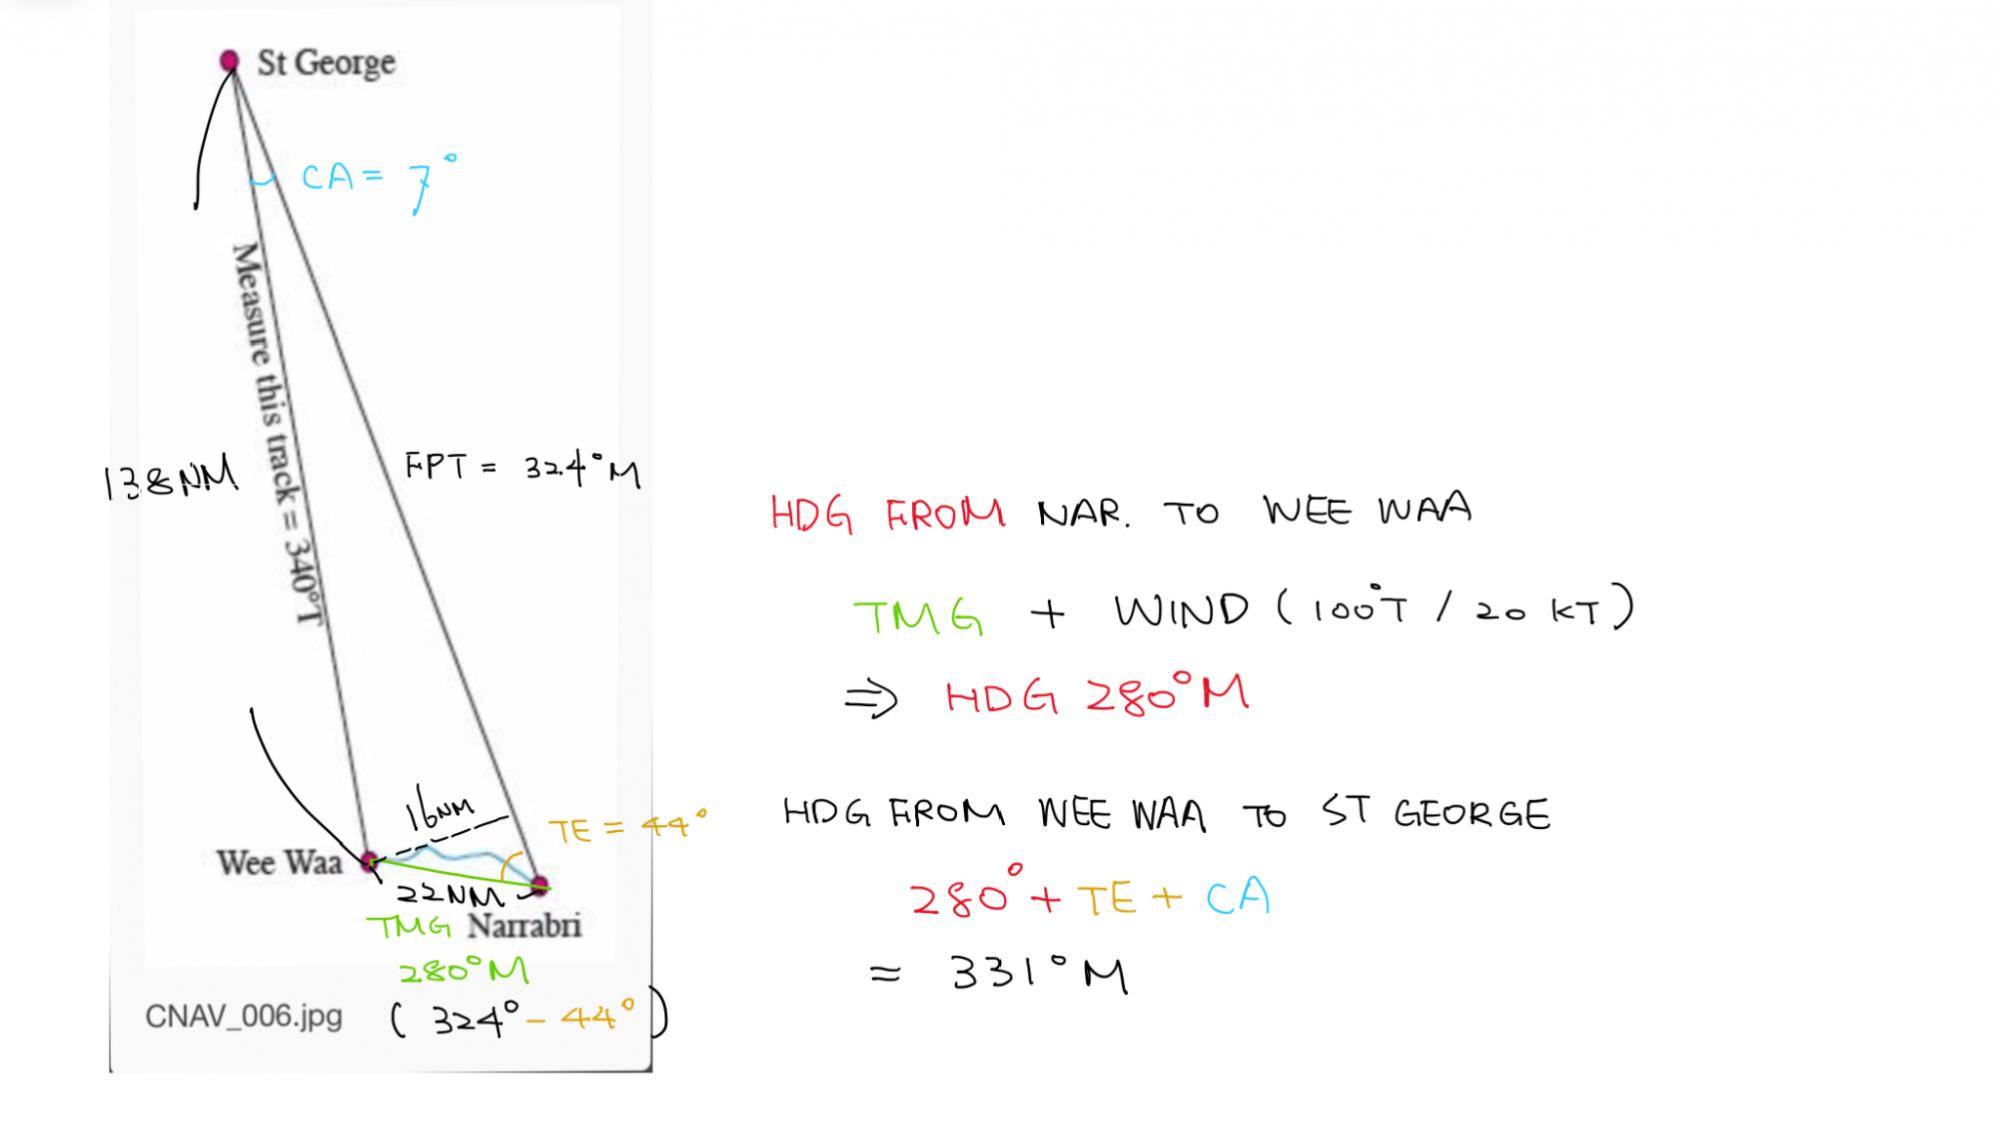 St George
CA = 7°
Measure this track = 340°T
138NM
FPT = 324°M
16NM
TE = 44°
Wee Waa
22NM
TMG Narrabri
280°M
CNAV_006.jpg (324° - 44°)
HDG FROM NAR. TO WEE WAA
TMG + WIND (100°T / 20 KT)
⇒ HDG 280°M
HDG FROM WEE WAA TO ST GEORGE
280° + TE + CA
= 331°M